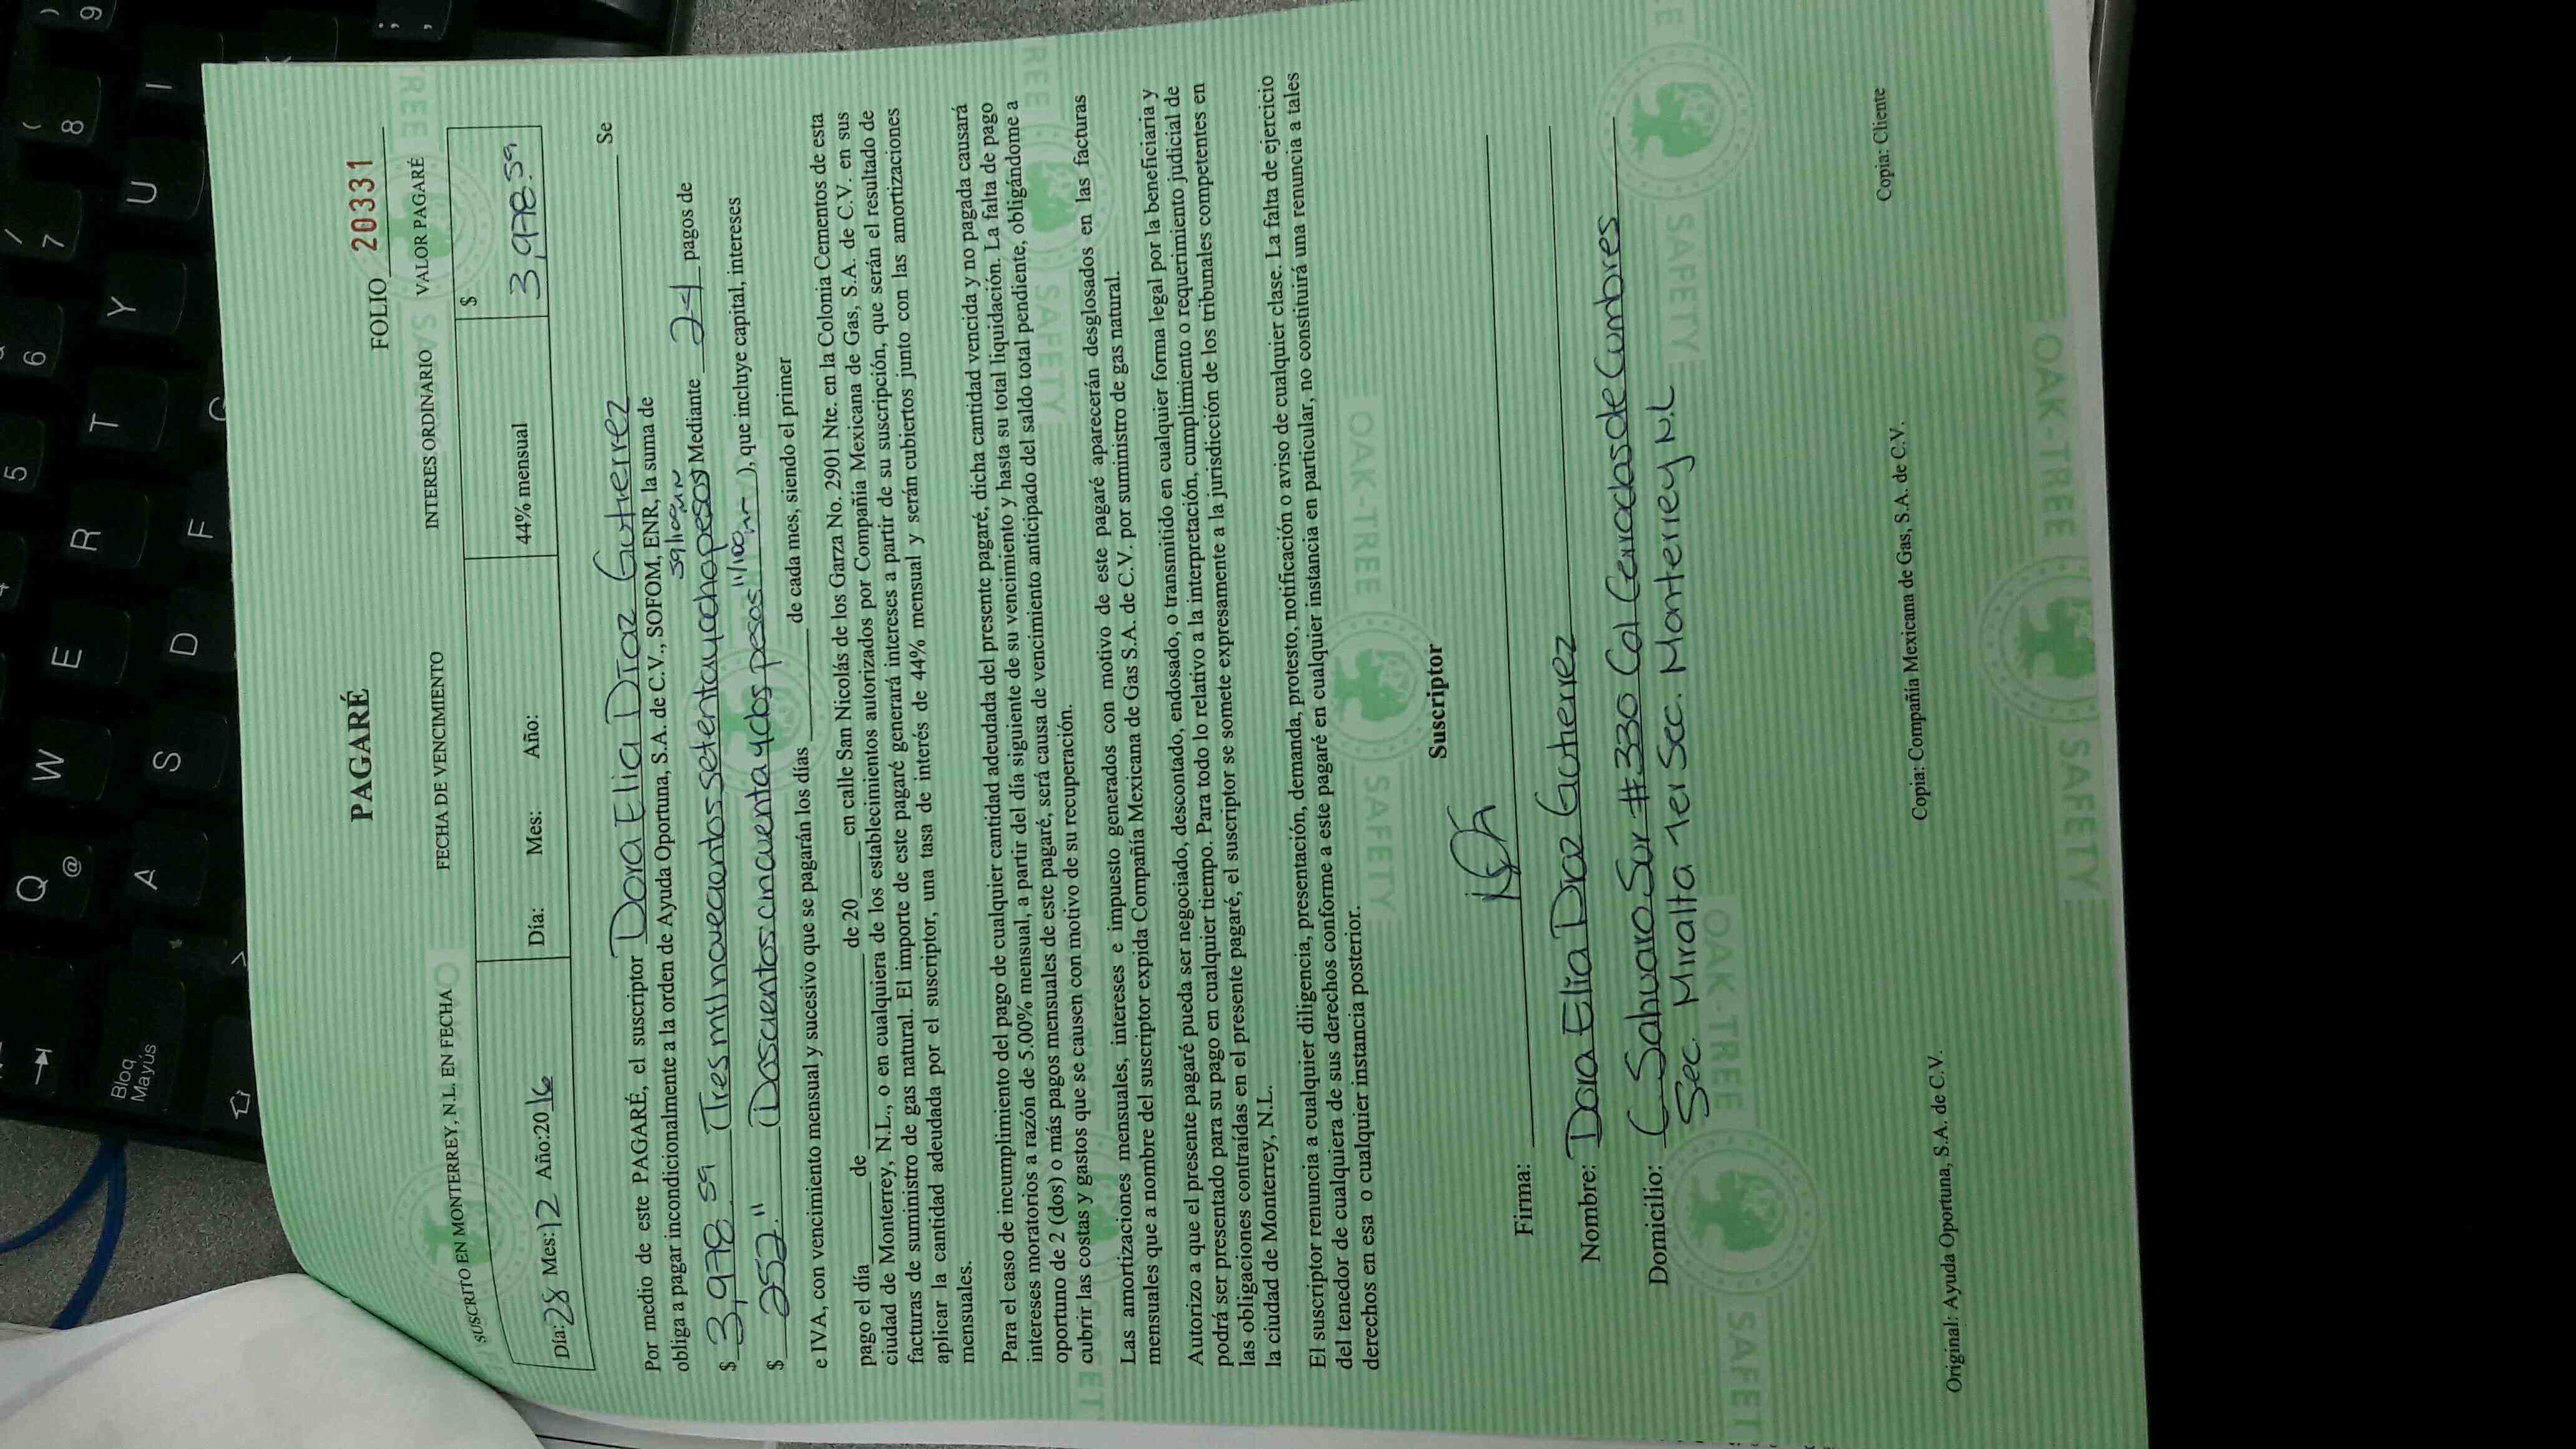 PAGARÉ
FOLIO 20331
SUSCRITO EN MONTERREY, N.L. EN FECHA FECHA DE VENCIMIENTO INTERES ORDINARIO VALOR PAGARÉ
Día: 28 Mes: 12 Año: 2016 Día: Mes: Año: 44% mensual $ 3,978.59
Por medio de este PAGARÉ, el suscriptor Dora Elia Díaz Gutierrez Se
obliga a pagar incondicionalmente a la orden de Ayuda Oportuna, S.A. de C.V., SOFOM, ENR, la suma de
$ 3,978.59 (Tres mil novecientos setenta y ocho pesos 59/100 mn) Mediante 24 pagos de
$ 252.11 (Doscientos cincuenta y dos pesos 11/100 mn), que incluye capital, intereses
e IVA, con vencimiento mensual y sucesivo que se pagarán los días ______ de cada mes, siendo el primer
pago el día______de______________de 20____en calle San Nicolás de los Garza No. 2901 Nte. en la Colonia Cementos de esta
ciudad de Monterrey, N.L., o en cualquiera de los establecimientos autorizados por Compañia Mexicana de Gas, S.A. de C.V. en sus
facturas de suministro de gas natural. El importe de este pagaré generará intereses a partir de su suscripción, que serán el resultado de
aplicar la cantidad adeudada por el suscriptor, una tasa de interés de 44% mensual y serán cubiertos junto con las amortizaciones
mensuales.
Para el caso de incumplimiento del pago de cualquier cantidad adeudada del presente pagaré, dicha cantidad vencida y no pagada causará
intereses moratorios a razón de 5.00% mensual, a partir del día siguiente de su vencimiento y hasta su total liquidación. La falta de pago
oportuno de 2 (dos) o más pagos mensuales de este pagaré, será causa de vencimiento anticipado del saldo total pendiente, obligándome a
cubrir las costas y gastos que se causen con motivo de su recuperación.
Las amortizaciones mensuales, intereses e impuesto generados con motivo de este pagaré aparecerán desglosados en las facturas
mensuales que a nombre del suscriptor expida Compañía Mexicana de Gas S.A. de C.V. por suministro de gas natural.
Autorizo a que el presente pagaré pueda ser negociado, descontado, endosado, o transmitido en cualquier forma legal por la beneficiaria y
podrá ser presentado para su pago en cualquier tiempo. Para todo lo relativo a la interpretación, cumplimiento o requerimiento judicial de
las obligaciones contraídas en el presente pagaré, el suscriptor se somete expresamente a la jurisdicción de los tribunales competentes en
la ciudad de Monterrey, N.L.
El suscriptor renuncia a cualquier diligencia, presentación, demanda, protesto, notificación o aviso de cualquier clase. La falta de ejercicio
del tenedor de cualquiera de sus derechos conforme a este pagaré en cualquier instancia en particular, no constituirá una renuncia a tales
derechos en esa o cualquier instancia posterior.
Suscriptor
Firma:
Nombre: Dora Elia Díaz Gutierrez
Domicilio: C Sahuaro Sur #330 Col Cerradas de Cumbres
Sec. Miralta 1er Sec. Monterrey N.L
Original: Ayuda Oportuna, S.A. de C.V. Copia: Compañía Mexicana de Gas, S.A. de C.V. Copia: Cliente
OAK-TREE SAFETY
Q W E R T Y U I
A S D F G
Bloq
Mayús
@
5 6 7 8 9